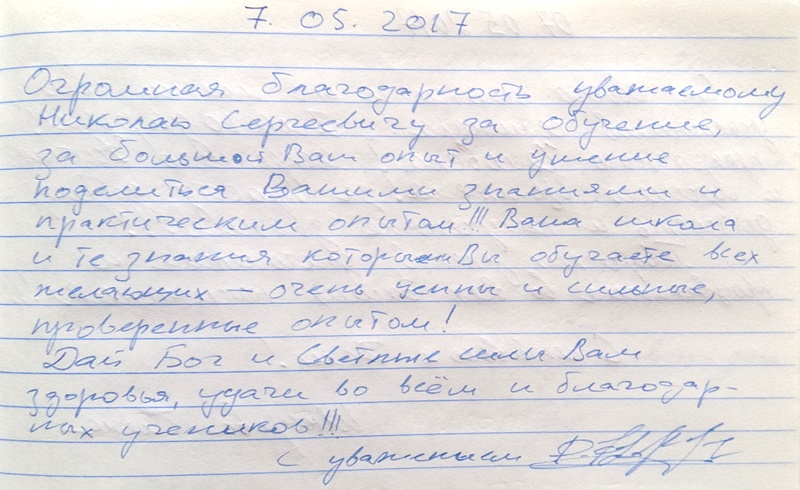 7. 05. 2017
Огромная благодарность уважаемому
Николаю Сергеевичу за обучение,
за большой Ваш опыт и умение
поделиться Вашими знаниями и
практическим опытом!!! Ваша школа
и те знания которыми Вы обучаете всех
желающих – очень ценны и сильные,
проверенные опытом!
Дай Бог и Светлые силы Вам
здоровья, удачи во всём и благодар-
ных учеников!!!
с уважением